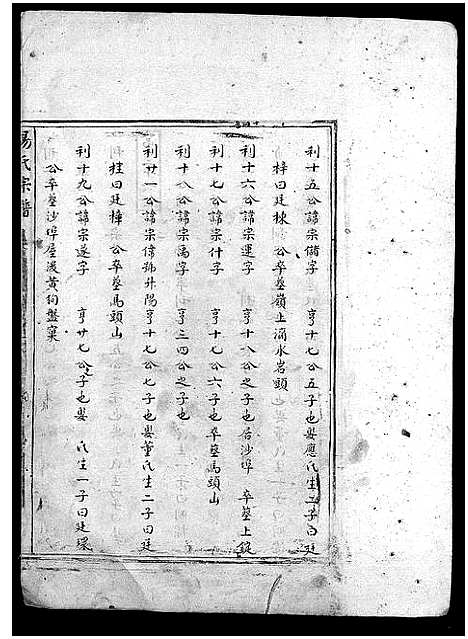 利十五公諱宗儲字 亨十七公五子也娶應氏生二子曰廷
梓曰廷棟 公卒墓嶺上滴水岩頭
利十六公諱宗運字 亨十八公之子也居沙埠 卒墓上錠
利十七公諱宗什字 亨十七公六子也卒墓馬頭山
利十八公諱宗禹字 亨三四公之子也
利廿一公諱宗偉號升陽亨十七公七子也娶董氏生二子曰廷
桂曰廷樟 公卒墓馬頭山
利十九公諱宗遂字 亨廿七公之子也娶 氏生一子曰廷環
公卒墓沙埠屋後黄狗盤窠
易氏宗譜